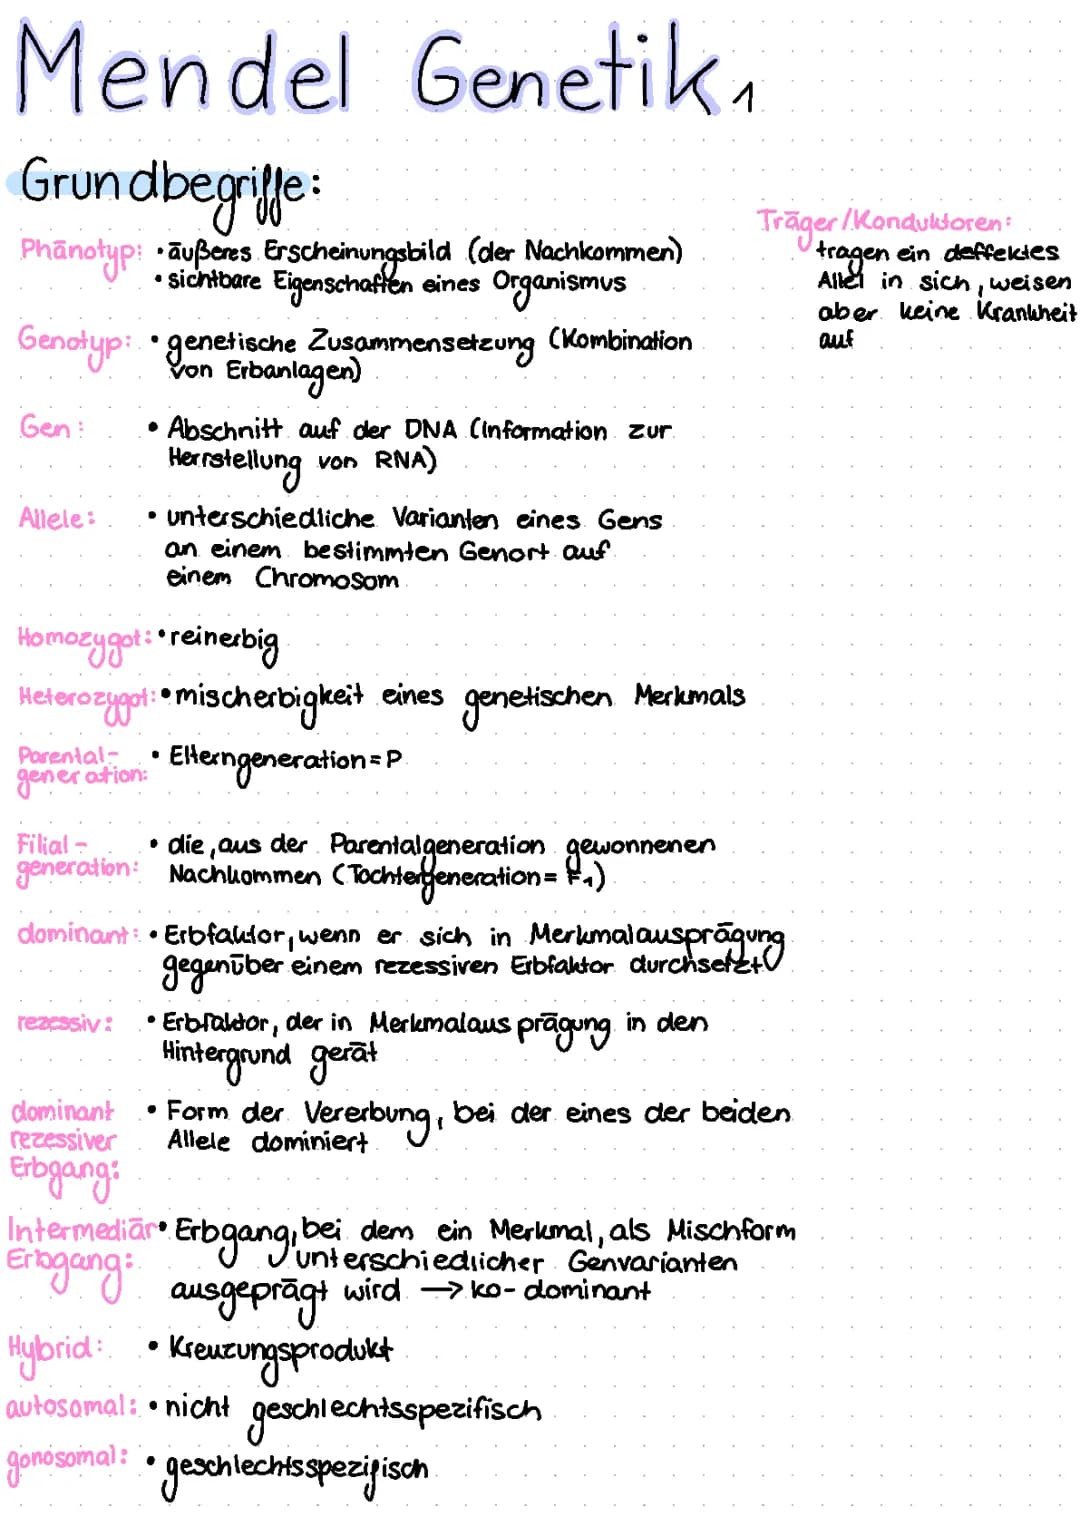 Mendel Genetik 1
Grundbegriffe:
Phänotyp: • äußeres Erscheinungsbild (der Nachkommen)
• sichtbare Eigenschaften eines Organismus
Genotyp: • genetische Zusammensetzung (Kombination
von Erbanlagen)
Gen: • Abschnitt auf der DNA (Information zur
Herrstellung von RNA)
Allele: • unterschiedliche Varianten eines Gens
an einem bestimmten Genort auf
einem Chromosom
Homozygot: • reinerbig
Heterozygot: • mischerbigkeit eines genetischen Merkmals
Parental-
generation: • Elterngeneration = P
Filial-
generation: • die, aus der Parentalgeneration gewonnenen
Nachkommen (Tochtergeneration = F1)
dominant: • Erbfaktor, wenn er sich in Merkmalausprägung
gegenüber einem rezessiven Erbfaktor durchsetzt
rezessiv: • Erbfaktor, der in Merkmalausprägung in den
Hintergrund gerät
dominant • Form der Vererbung, bei der eines der beiden
rezessiver Allele dominiert
Erbgang:
Intermediär • Erbgang, bei dem ein Merkmal, als Mischform
Erbgang: unterschiedlicher Genvarianten
ausgeprägt wird → ko-dominant
Hybrid: • Kreuzungsprodukt
autosomal: • nicht geschlechtsspezifisch
gonosomal: • geschlechtsspezifisch
Träger/Konduktoren:
tragen ein deffektes
Allel in sich, weisen
aber keine Krankheit
auf